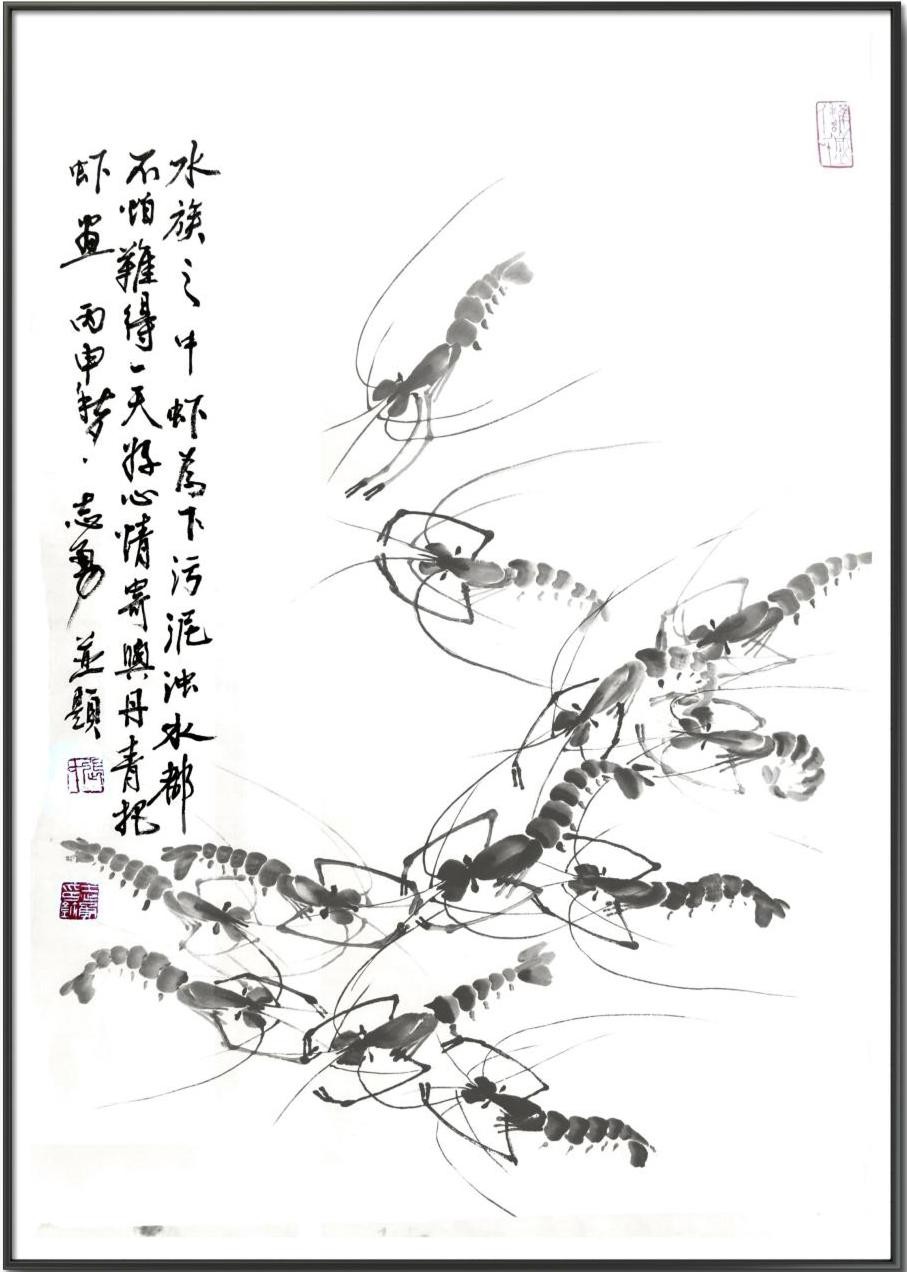 水族之中虾為下污泥浊水都
不怕難得一天好心情寄與丹青把
虾畫 丙申 志勇 並題